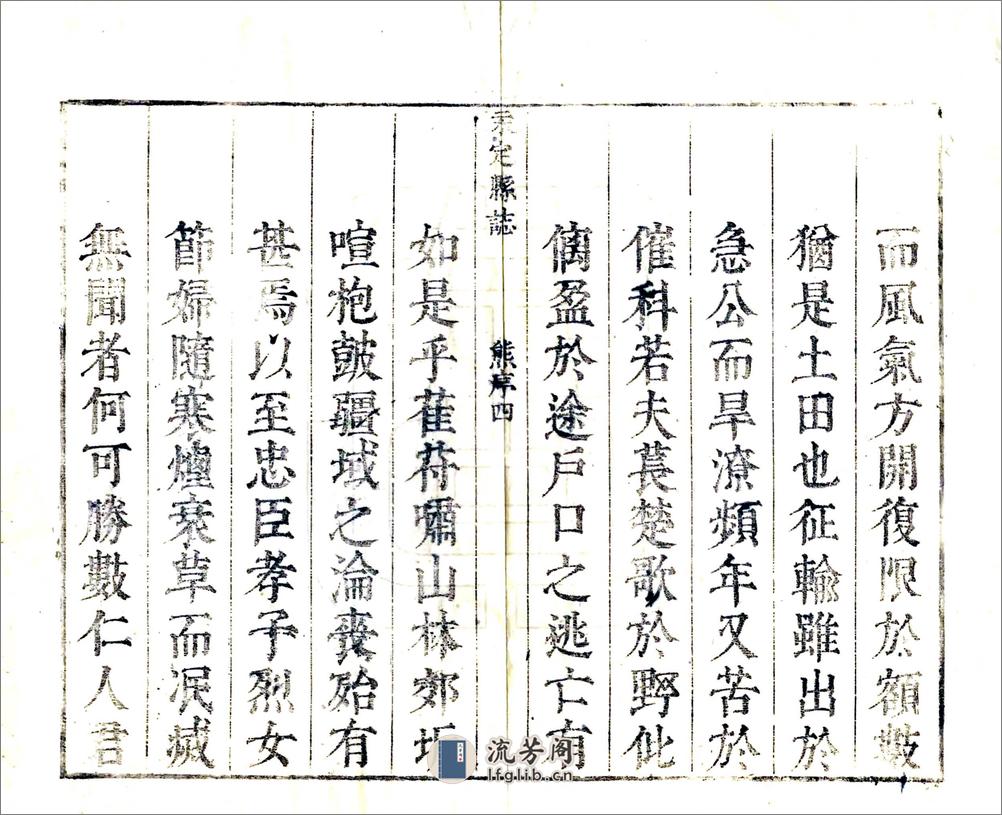 而風氣方開復限於額數
猶是土田也征輸雖出於
急公而旱潦頻年又苦於
催科若夫萇楚歌於野仳
盈於途戶口之逃亡有
永定縣誌
熊序四
如是乎萑苻嘯山林郊坰
喧枹鼓疆域之淪喪殆有
甚焉以至忠臣孝子烈女
節婦隨寒煙衰草而泯滅
無聞者何可勝數仁人君
流芳阁
lfglib.cn